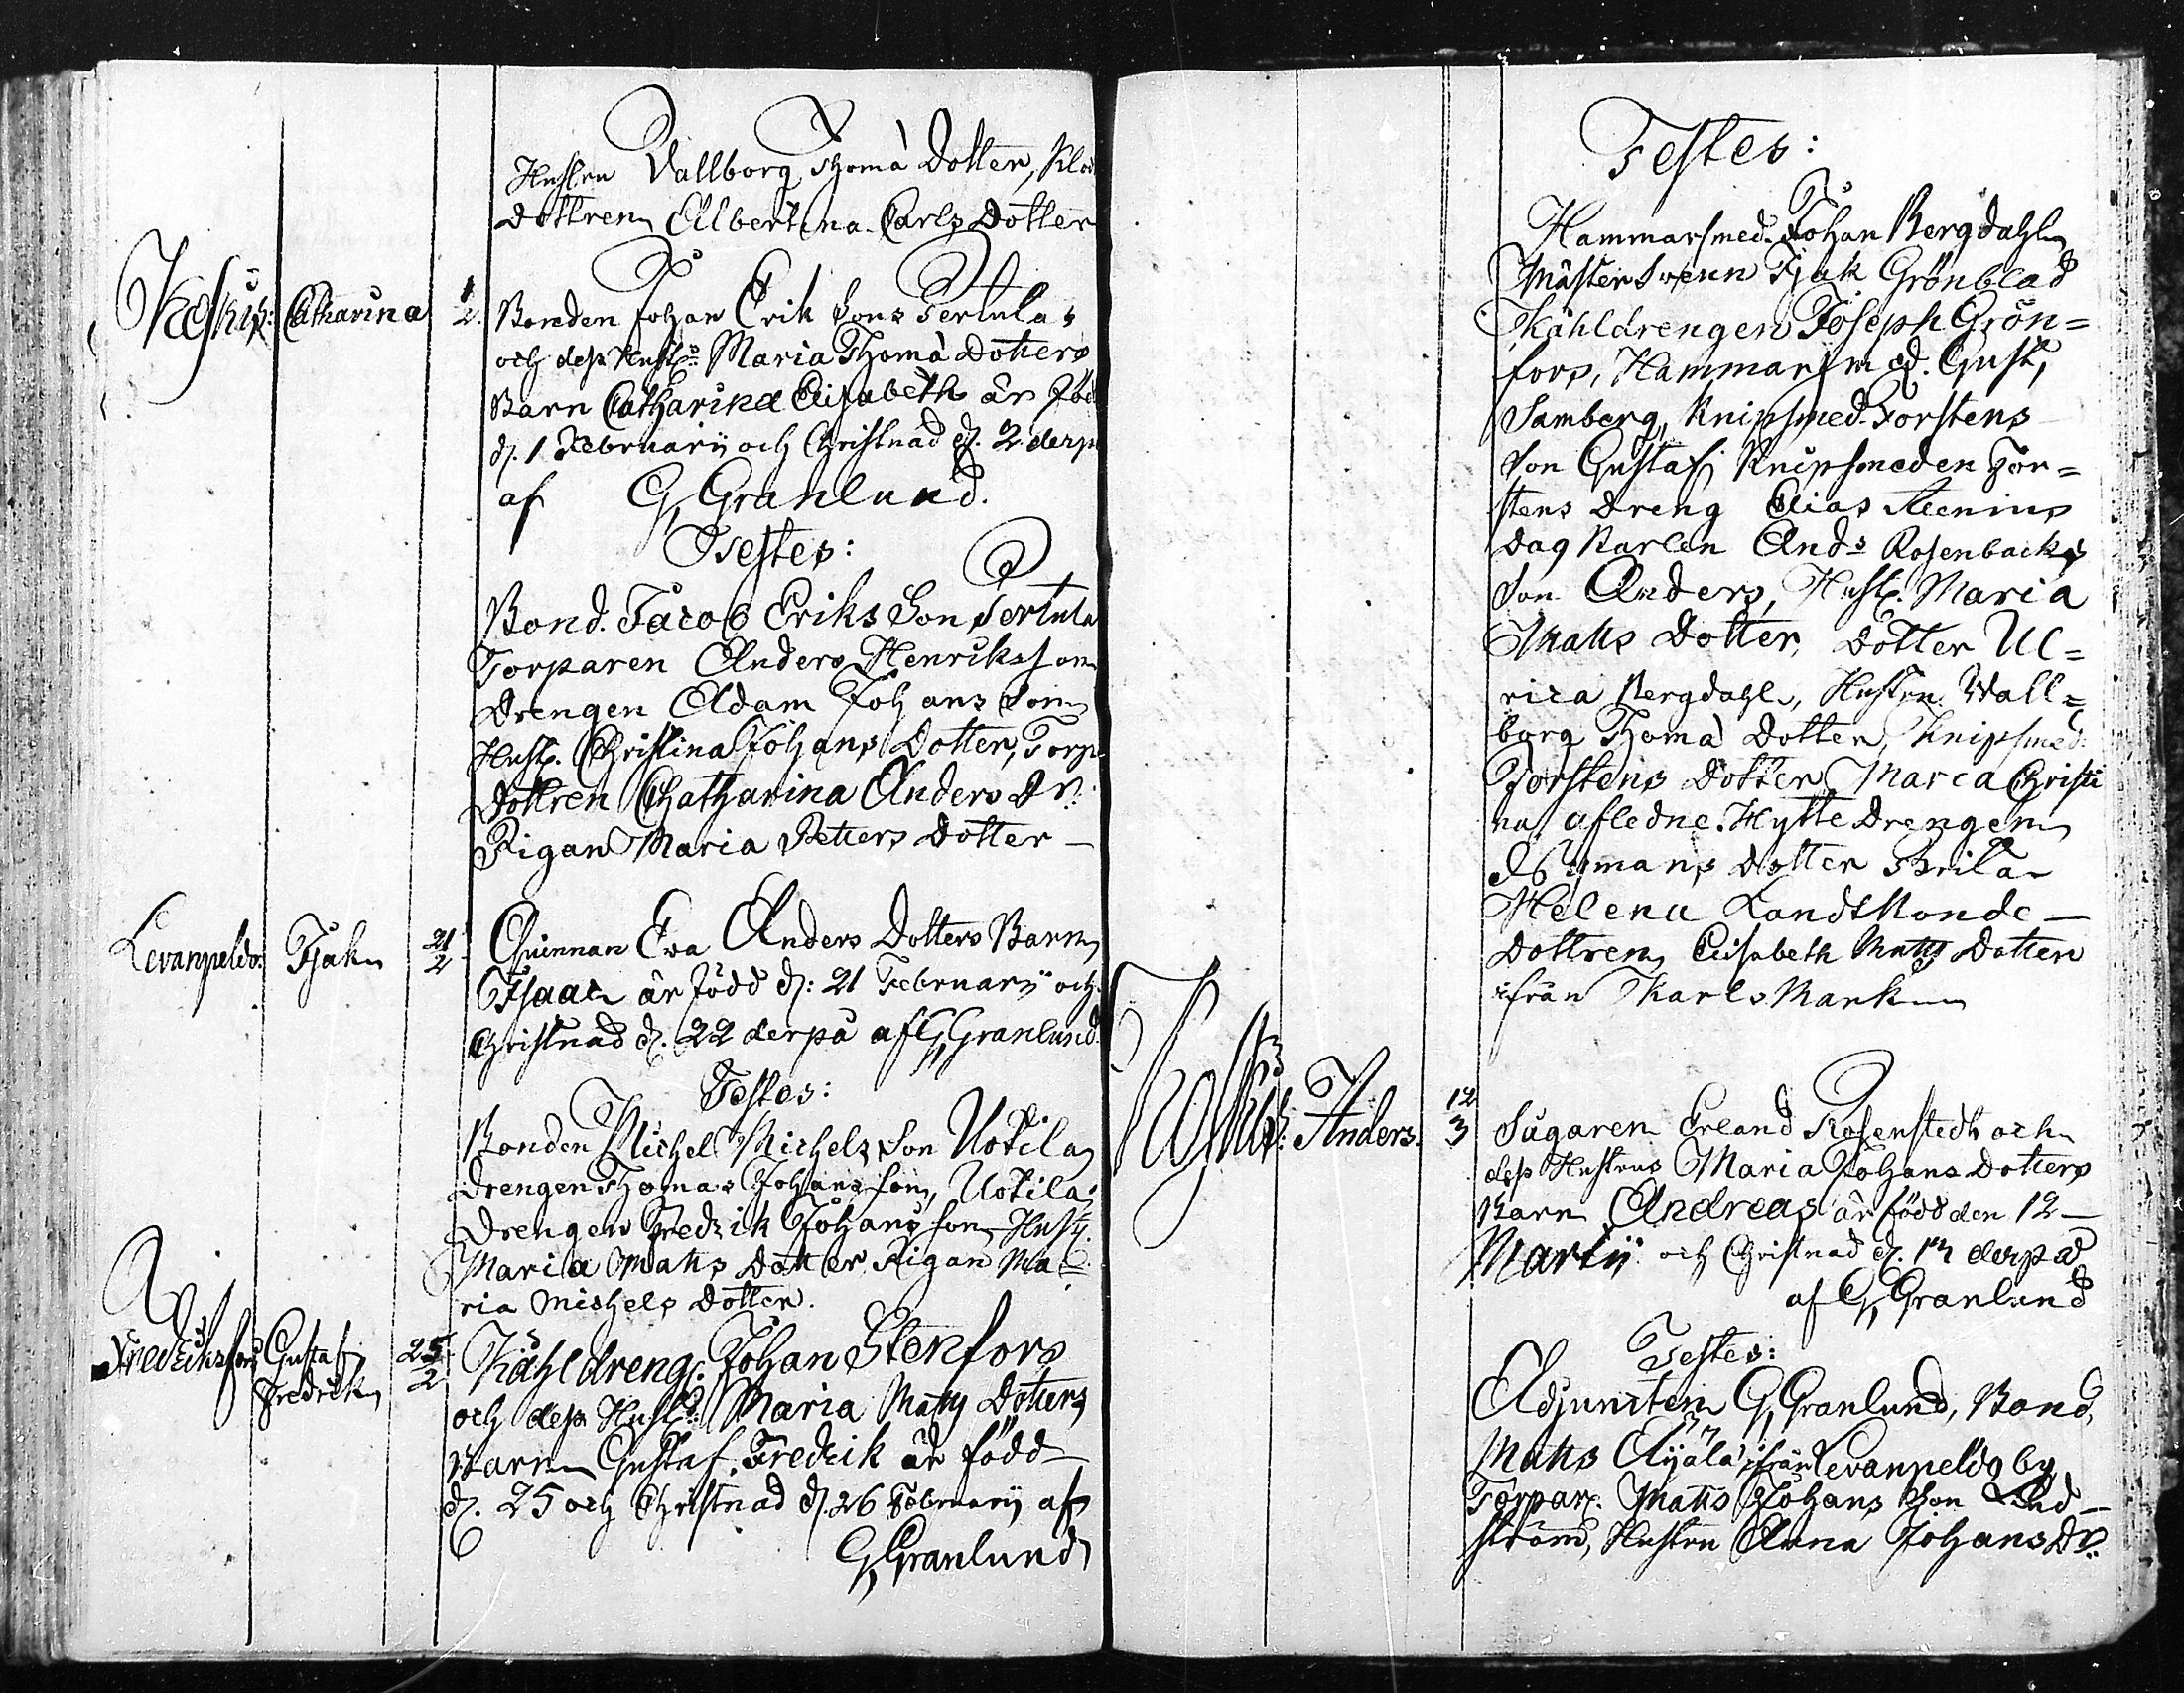 Hustru Vallborg Thomä Dotter,
dottren Albertina Carls Dotter
Keskis: Catharina 1/2. Bonden Johan Erik Sons Pertulas
och dess Hust: Maria Thomä Dotters
Barn Catharina Elisabeth är Född
d. 1 Februarij och Christnad d. 2 derpå
af G, Granlund.
Testes:
Bond. Jacob Eriks Son Pertula
Torparen Anders Henriksson
Drengen Adam Johans Son
Hust. Christina Johans Dotter, Torp
dottren Chatharina Anders Dr:
Pigan Maria Petters Dotter
Levanpeldo: Isak 21/2 Quinnan Eva Anders Dotters Barn
Isaac är född d: 21 Februarij och
Christnad d. 22 derpå af G, Granlund
Testes:
Bonden Michel Michels Son Uotila
drengen Thomas Johans son, Uotila
Drengen Fredrik Johans son Hust.
Maria Matts Dotter Pigan Ma=
ria Michels Dotter.
Fredriksfors Gustaf Fredrik 25/2 Kåhldreng. Johan Stenfors
och dess Hust: Maria Matts Dotters
Barn Gustaf Fredrik är född
d. 25 och Christnad d. 26 Februarij af
G, Granlund
Testes:
Hammarsmed. Johan Bergdahl
Mästersvenn Isak Grönblad
Kåhldrengen Joseph Grön=
fors, Hammarsmed. Gust,
Samberg, Knipsmed. Forstens
Son Gustaf, Knipsmeden For=
stens Dreng Elias Alenius
Dag Karlen Ands Rosenbacks
Son Anders, Hust. Maria
Matts Dotter, Dotter Ul=
rica Bergdahl, Hustru Wall=
borg Thomä Dotter, Knipsmed:
Forstens Dotter Maria Christi
na, afledne Hytte Drengen
Nymans Dotter Brita
Helena Landtbonde
Dottren Elisabeth Matts Dotter
ifrån Karlsmark
Anders. 12/3 Sågaren Erland Rosenstedt och
dess Hustrus Maria Johans Dotters
Barn Andreas är född den 12
Martij och Christnad d. 14 derpå
af G, Granlund
Testes:
Adjuncten G, Granlund, Bond,
Matts Äijälä ifrån Levanpeldo by
Torpar. Matts Johans Son Lind
ström, Hustru Anna Johans Dr: